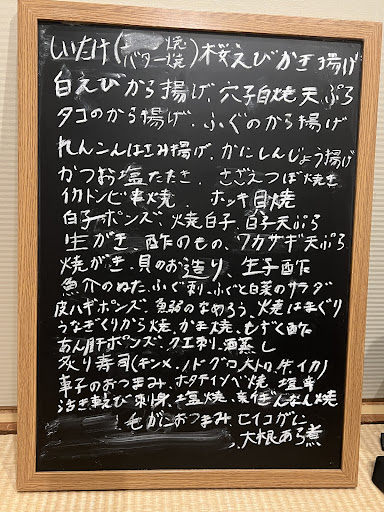 しいたけ(バター焼 焼)桜えびかき揚げ
白えびから揚げ、穴子白焼天ぷら
タコのから揚げ、ふぐのから揚げ
れんこんはさみ揚げ、かにしんじょう揚げ
かつお塩たたき、さざえつぼ焼き
イカトンビ串焼 ホッキ貝焼
白子ポンズ、焼白子、白子天ぷら
生がき 酢のもの、ワカサギ天ぷら
焼がき、貝のお造り 生子酢
魚介のぬた、ふぐ刺、ふぐと白菜のサラダ
皮ハギポンズ、魚弱のなめろう、焼はまぐり
うなぎくりから焼、かま焼、もずく酢
あん肝ポンズ、クエ刺、酒蒸し
炙り寿司(キンメ、ノドグロ、大トロ、イカ)
辛子のおつまみ、ホタテインベ焼、塩辛
活き車えび刺身、塩焼、ぎんなん焼
毛がにおつまみ セイコがに
、大根あら煮